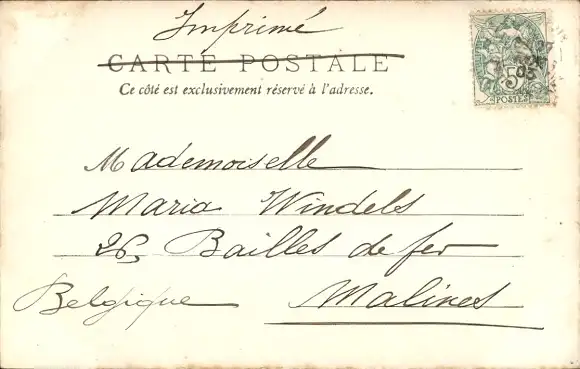 Imprimé
CARTE POSTALE
Ce côté est exclusivement réservé à l'adresse.
5
POSTES
05
Mademoiselle
Maria Windels
26, Bailles de fer
Belgique Malines